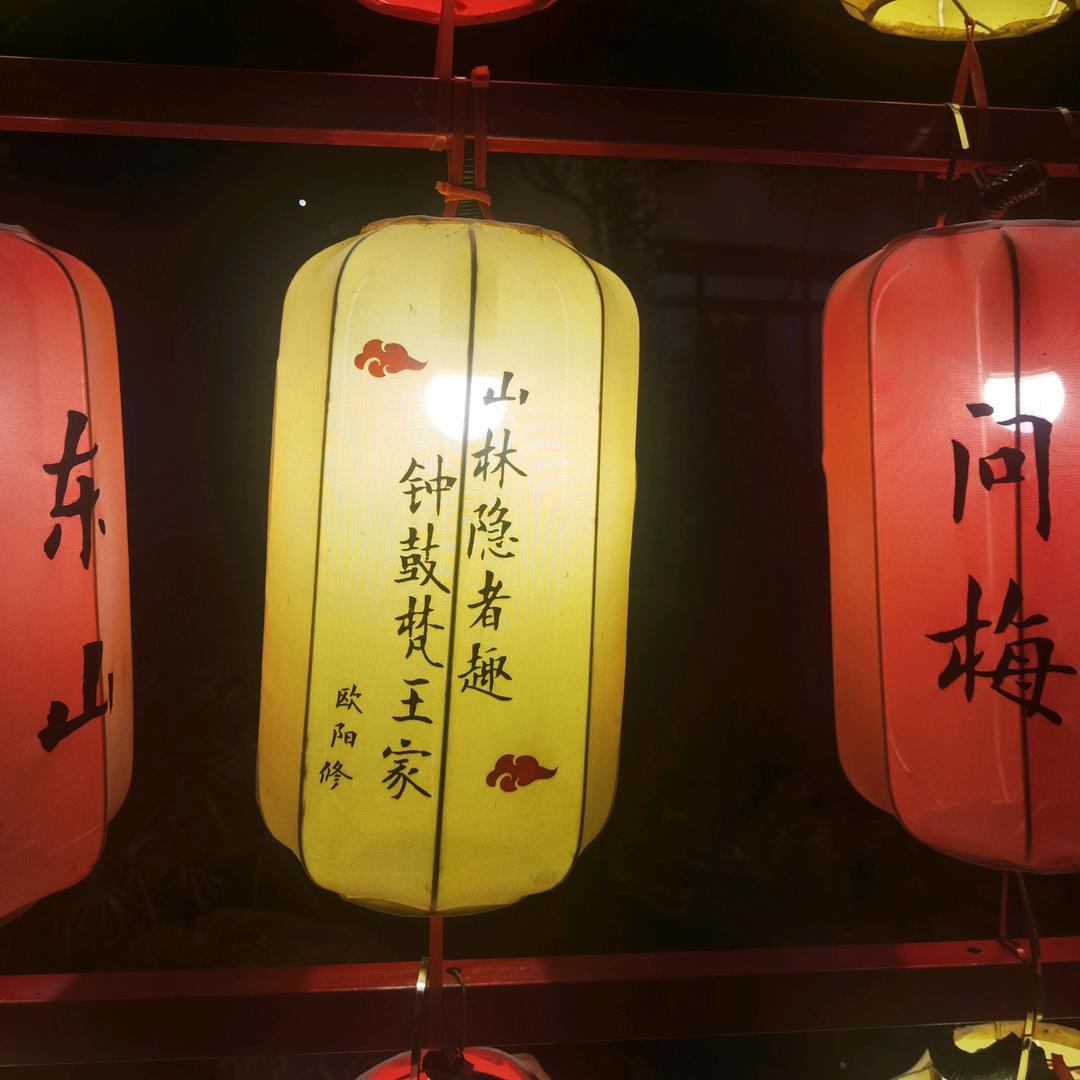 东山
山林隐者趣
钟鼓梵王家
欧阳修
问梅